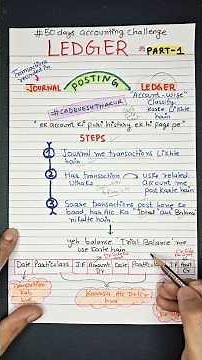 #50 days accounting challenge
LEDGER
PART-1
Transactions
recorded in
JOURNAL
POSTING
LEDGER
Account-wise
Classify
karte likhte
hain
#CADEVESHTHAKUR
"ek account ki puri history ek hi page pe"
STEPS
1 Journal me transactions likhte
hain
2 Har transaction → uske related
account me
post karte hain
3 Saare transactions post hone ke
baad, har A/c ka Total aur Balance
nikalte hain
↓
yeh balance Trial Balance me
use karte hain
Date Particulars J.F Amount Date Particulars J.F Amt
Dr Cr
Transaction
kab
hua
Kaunsa A/c Debit
hua